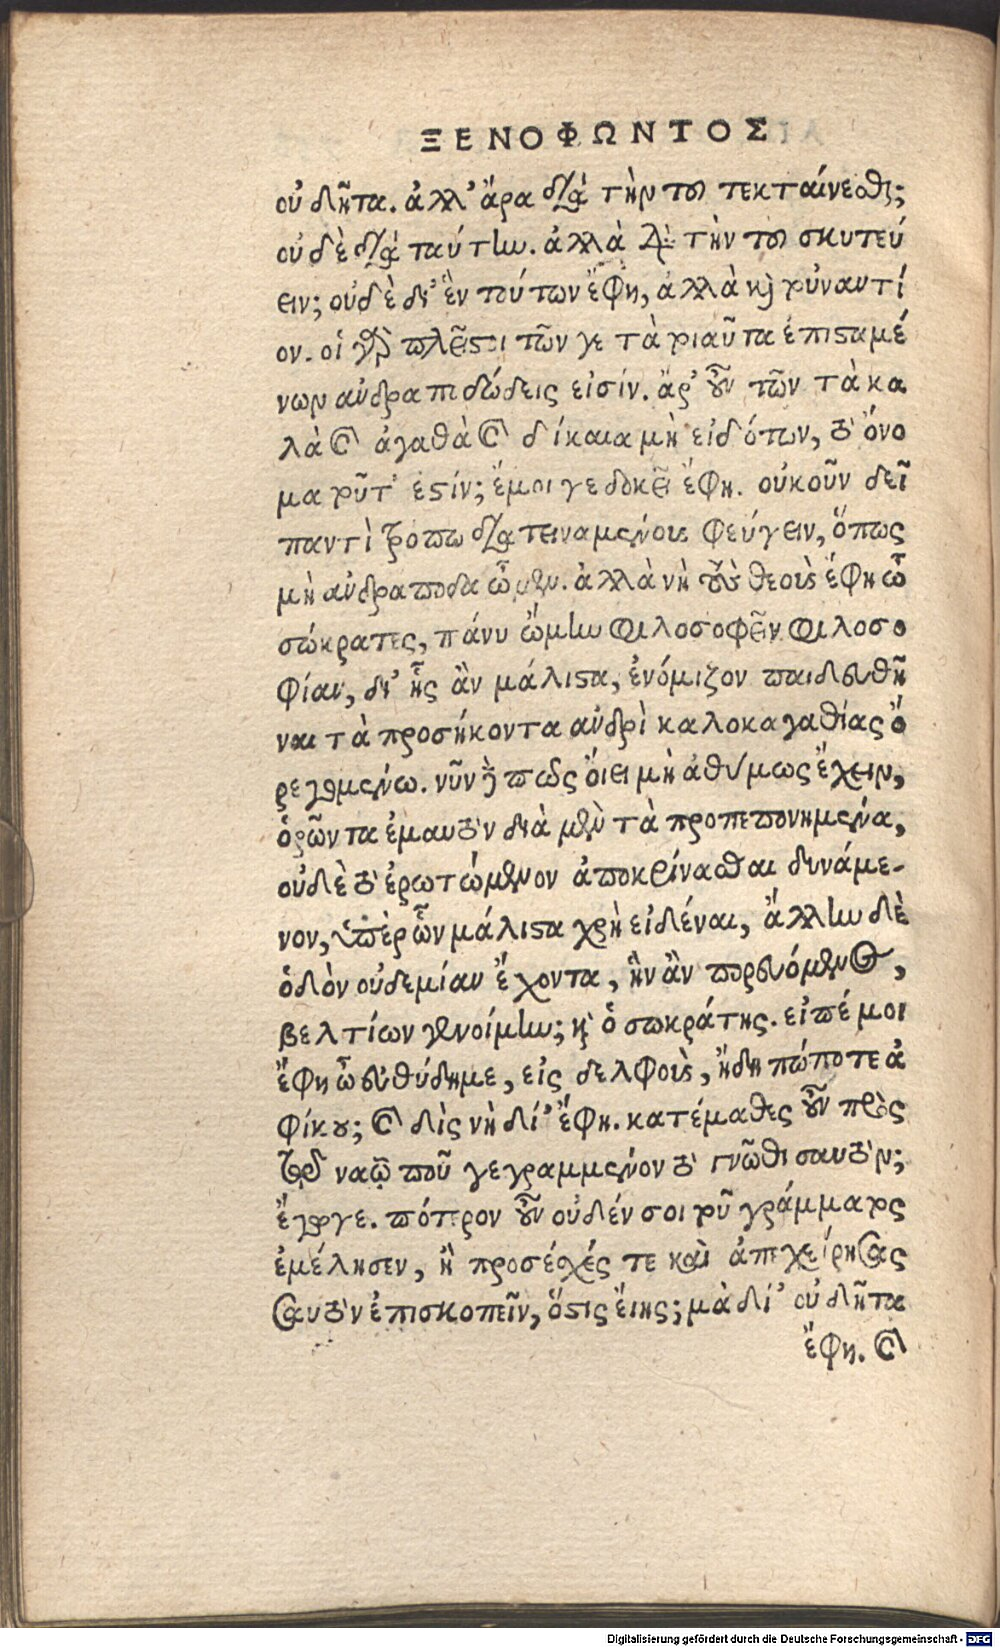 ΞΕΝΟΦΩΝΤΟΣ
οὐ δῆτα. ἀλλ' ἄρα διὰ τὴν τοῦ τεκταίνεσθαι;
οὐδὲ διὰ ταύτην. ἀλλὰ διὰ τὴν τοῦ σκυτεύ
ειν; οὐδὲ δι' ἓν τούτων ἔφη, ἀλλὰ καὶ τοὐναντί
ον. οἱ γὰρ πλεῖστοι τῶν γε τὰ τοιαῦτα ἐπισταμέ
νων ἀνδραποδώδεις εἰσίν. ἆρ' οὖν τῶν τὰ κα
λὰ καὶ ἀγαθὰ καὶ δίκαια μὴ εἰδότων, τὸ ὄνο
μα τοῦτ' ἐστίν; ἔμοιγε δοκεῖ ἔφη. οὐκοῦν δεῖ
παντὶ τρόπω διατειναμένους φεύγειν, ὅπως
μὴ ἀνδράποδα ὦμεν. ἀλλὰ νὴ τοὺς θεοὺς ἔφη ὦ
σώκρατες, πάνυ ᾤμην φιλοσοφεῖν φιλοσο
φίαν, δι' ἧς ἂν μάλιστα, ἐνόμιζον παιδευθῆ
ναι τὰ προσήκοντα ἀνδρὶ καλοκαγαθίας ὀ
ρεγομένω. νῦν δὲ πῶς οἴει μὴ ἀθύμως ἔχειν,
ὁρῶντα ἐμαυτὸν διὰ μὲν τὰ προπεπονημένα,
οὐδὲ τὸ ἐρωτώμενον ἀποκρίνασθαι δυνάμε-
νον, ὑπὲρ ὧν μάλιστα χρὴ εἰδέναι, ἄλλην δὲ
ὁδὸν οὐδεμίαν ἔχοντα, ἣν ἂν πορευόμενος,
βελτίων γενοίμην; καὶ ὁ σωκράτης. εἰπέ μοι
ἔφη ὦ εὐθύδημε, εἰς δελφοὺς, ἤδη πώποτε ἀ
φίκου; καὶ δὶς νὴ δί' ἔφη. κατέμαθες οὖν πρὸς
τῷ ναῷ που γεγραμμένον τὸ γνῶθι σαυτὸν;
ἔγωγε. πότερον οὖν οὐδέν σοι τοῦ γράμματος
ἐμέλησεν, ἢ προσέσχές τε καὶ ἀπεχείρησας
σαυτὸν ἐπισκοπεῖν, ὅστις εἴης; μὰ δί' οὐ δῆτα
ἔφη. καὶ
Digitalisierung gefördert durch die Deutsche Forschungsgemeinschaft - DFG